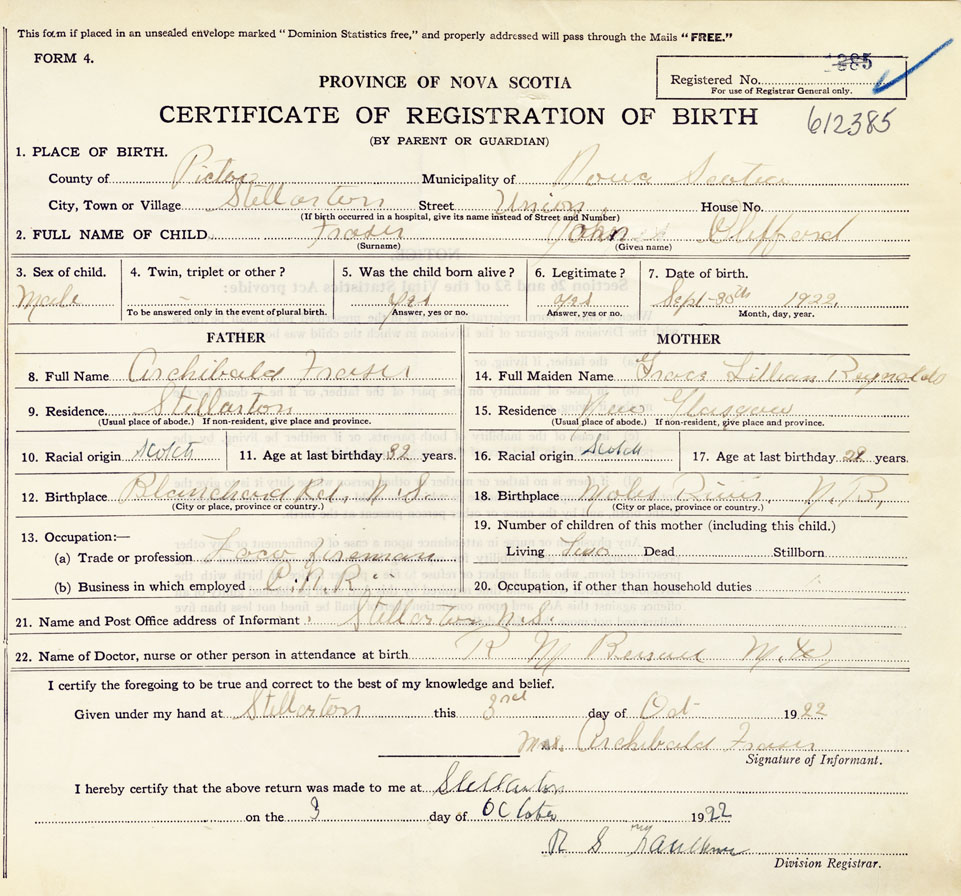 This form if placed in an unsealed envelope marked "Dominion Statistics free," and properly addressed will pass through the Mails "FREE."
FORM 4.
PROVINCE OF NOVA SCOTIA
Registered No. 1285
For use of Registrar General only.
CERTIFICATE OF REGISTRATION OF BIRTH 612385
(BY PARENT OR GUARDIAN)
1. PLACE OF BIRTH.
County of Pictou Municipality of Nova Scotia
City, Town or Village Stellarton Street Union House No.
(If birth occurred in a hospital, give its name instead of Street and Number)
2. FULL NAME OF CHILD Fraser John Clifford
(Surname) (Given name)
3. Sex of child. 4. Twin, triplet or other? 5. Was the child born alive? 6. Legitimate? 7. Date of birth.
Male - yes yes Sept-30th 1922
To be answered only in the event of plural birth. Answer, yes or no. Answer, yes or no. Month, day, year.
FATHER MOTHER
8. Full Name Archibald Fraser 14. Full Maiden Name Grace Lillian Reynolds
9. Residence Stellarton 15. Residence New Glasgow
(Usual place of abode.) If non-resident, give place and province. (Usual place of abode.) If non-resident, give place and province.
10. Racial origin Scotch 11. Age at last birthday 32 years. 16. Racial origin Scotch 17. Age at last birthday 22 years.
12. Birthplace Blanchard Rd, N.S. 18. Birthplace River, N.B.,
(City or place, province or country.) (City or place, province or country.)
13. Occupation:— 19. Number of children of this mother (including this child.)
(a) Trade or profession Loco fireman Living Two Dead Stillborn
(b) Business in which employed C.N.R. 20. Occupation, if other than household duties
21. Name and Post Office address of Informant Stellarton N.S.
22. Name of Doctor, nurse or other person in attendance at birth R M M.D,
I certify the foregoing to be true and correct to the best of my knowledge and belief.
Given under my hand at Stellarton this 3rd day of Oct 1922
Mrs. Archibald Fraser
Signature of Informant.
I hereby certify that the above return was made to me at Stellarton
on the 3 day of October 1922
R S Faulkner
Division Registrar.